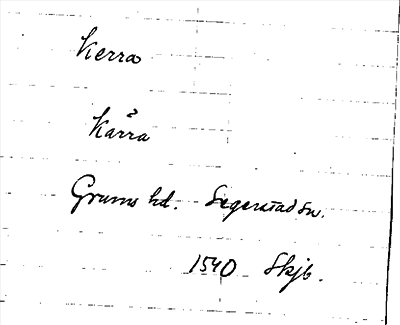 Kerra
Kärra
Grums hd. Segerstad sn.
1540 Skjb.